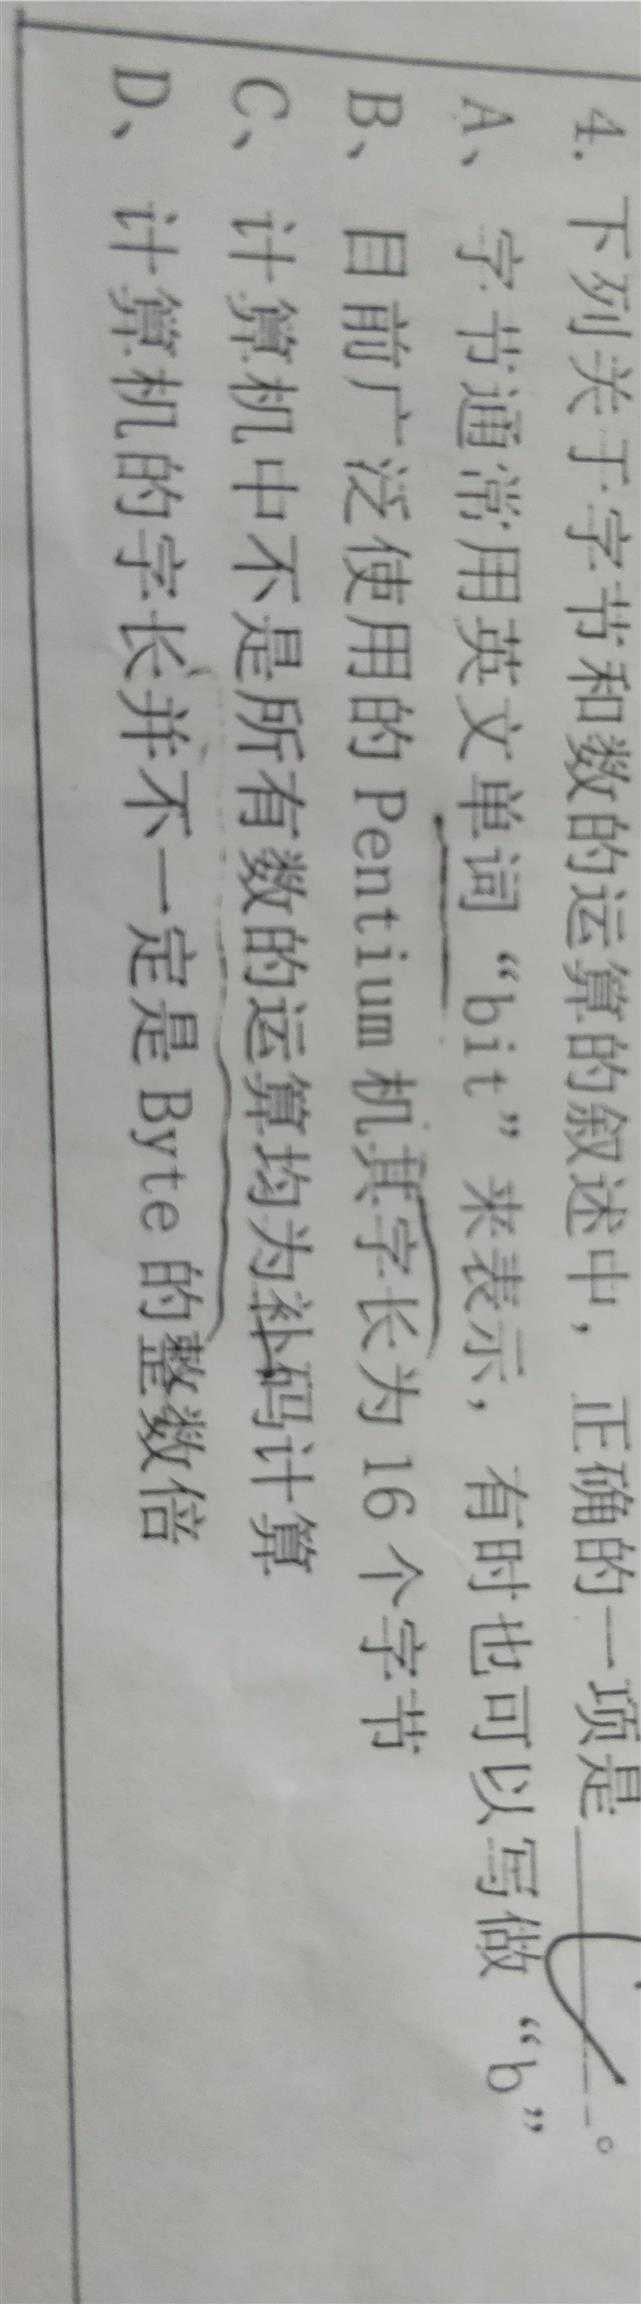 4. 下列关于字节和数的运算的叙述中，正确的一项是______。
A、字节通常用英文单词“bit”来表示，有时也可以写做“b”
B、目前广泛使用的 Pentium 机其字长为 16 个字节
C、计算机中不是所有数的运算均为补码计算
D、计算机的字长并不一定是 Byte 的整数倍